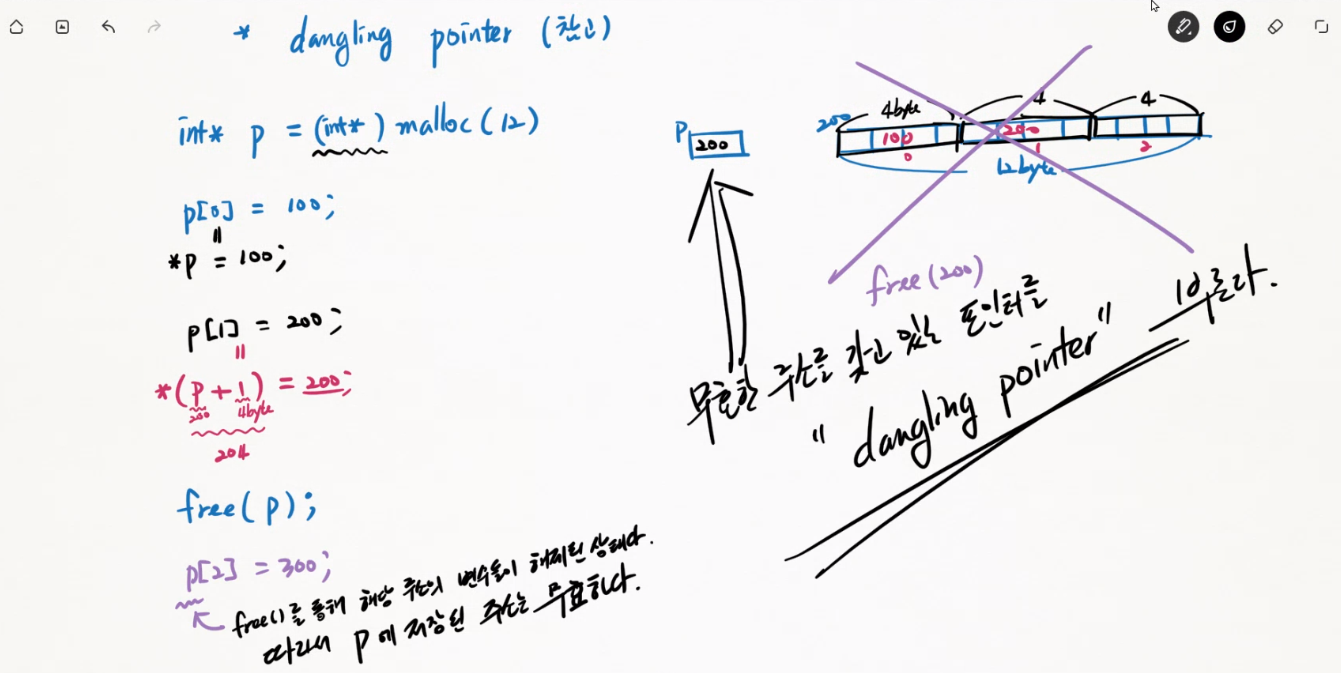 * dangling pointer (참고)
int* p = (int*) malloc(12)
p[0] = 100;
*p = 100;
p[1] = 200;
*(p+1) = 200;
200 4byte
204
free(p);
p[2] = 300;
free()를 통해 해당 주소의 변수들이 해제된 상태다.
따라서 p에 저장된 주소는 무효하다.
p 200
200 4byte 4 4
100 200
0 1 2
12byte
free(200)
무효한 주소를 갖고 있는 포인터를
"dangling pointer" 라